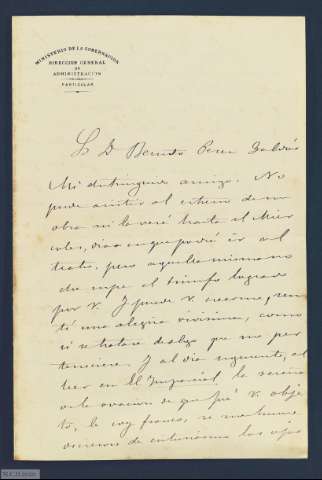 MINISTERIO DE LA GOBERNACION
DIRECCION GENERAL
DE
ADMINISTRACION
PARTICULAR
S. D. Benito Perez Galdós
Mi distinguido amigo: No
pude asistir al estreno de su
obra ni la veré hasta el Miér
coles, dia en que podré ir al
teatro, pero aquella misma no
che supe el triunfo logrado
por V. Y puede V. creerme, sen
tí una alegria vivisima, como
si se tratase de algo que me per
teneciera. Y al dia siguiente, al
leer en El Imparcial la reseña
de la ovacion de que fué V. obje
to, le soy franco, se me hume
decieron de entusiasmo los ojos